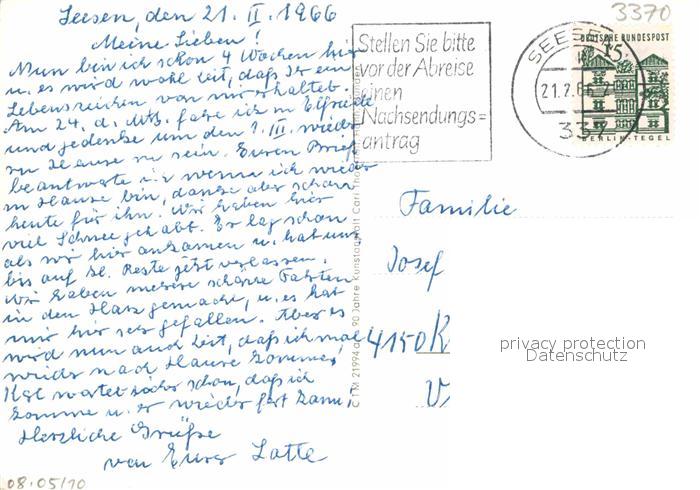 Seesen, den 21. II. 1966
Meine Lieben!
Nun bin ich schon 4 Wochen hier
u. es wird wohl Zeit, daß Ihr ein
Lebenszeichen von mir erhaltet.
Am 24. d. Mts. fahre ich zu Elfriede
und gedenke um den 1. III. wieder
zu Hause zu sein. Euren Brief
beantworte ich wenn ich wieder
zu Hause bin, danke aber schon
heute für ihn. Wir haben hier
viel Schnee gehabt. Es lag schon
als wir hier ankamen u. hat uns
bis auf kl. Reste jetzt verlassen.
Wir haben mehrere schöne Fahrten
in den Harz gemacht, u. es hat
mir hier sehr gefallen. Aber es
wird nun auch Zeit, daß ich mal
wieder nach Hause komme,
wartet schon, daß ich
komme u. er wieder fort kann.
Herzliche Grüße
von Eurer Lotte
08.05/10
C TM 21994 a 90 Jahre Kunstanstalt Carl
Stellen Sie bitte
vor der Abreise
einen
Nachsendungs=
antrag
SEESEN
21.2.66
337
3370
DEUTSCHE BUNDESPOST
15
BERLIN-TEGEL
Familie
Josef
4150 K
V
privacy protection
Datenschutz